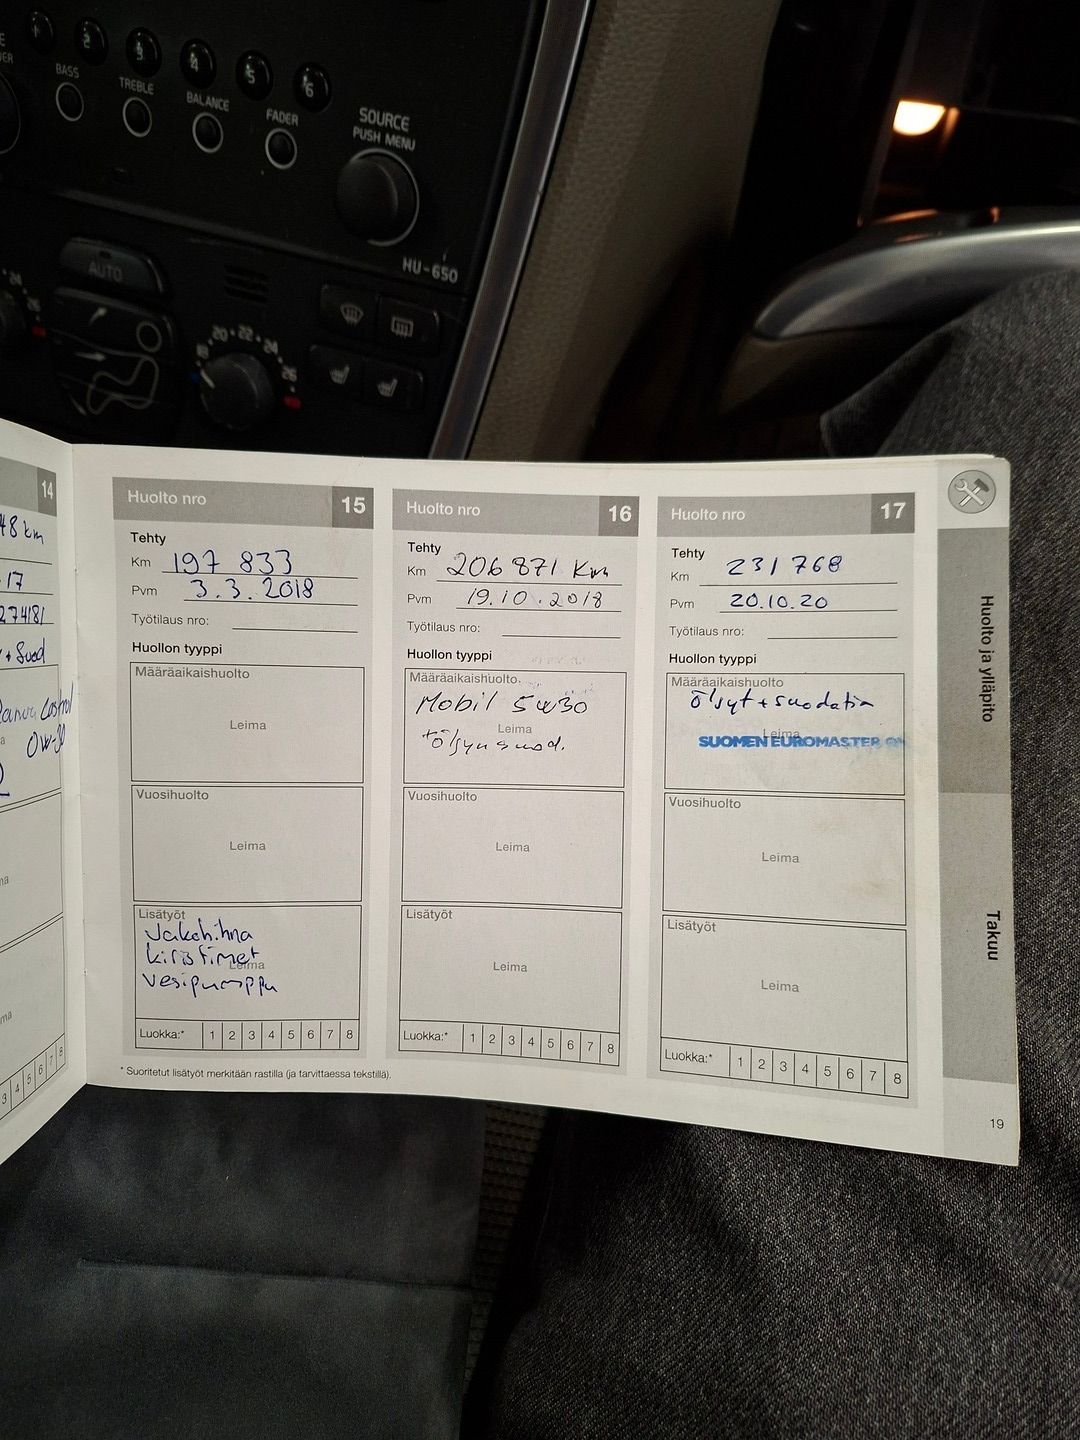 1 2 3 4 5 6
BASS TREBLE BALANCE FADER
SOURCE
PUSH MENU
HU-650
AUTO
18 20 22 24 26
14
48 km
17
274181
+ Suod
OW-30
3 4 5 6 7 8
Huolto nro 15
Tehty
Km 197 833
Pvm 3.3.2018
Työtilaus nro:
Huollon tyyppi
Määräaikaishuolto
Leima
Vuosihuolto
Leima
Lisätyöt
Jakohihna
kiristimet
Leima
vesipumppu
Luokka:* 1 2 3 4 5 6 7 8
* Suoritetut lisätyöt merkitään rastilla (ja tarvittaessa tekstillä).
Huolto nro 16
Tehty
Km 206 871 Km
Pvm 19.10.2018
Työtilaus nro:
Huollon tyyppi
Määräaikaishuolto
Mobil 5w30
Leima
+öljynsuod.
Vuosihuolto
Leima
Lisätyöt
Leima
Luokka:* 1 2 3 4 5 6 7 8
Huolto nro 17
Tehty
Km 231 768
Pvm 20.10.20
Työtilaus nro:
Huollon tyyppi
Määräaikaishuolto
öljyt + suodatin
Leima
SUOMEN EUROMASTER OY
Vuosihuolto
Leima
Lisätyöt
Leima
Luokka:* 1 2 3 4 5 6 7 8
Huolto ja ylläpito
Takuu
19